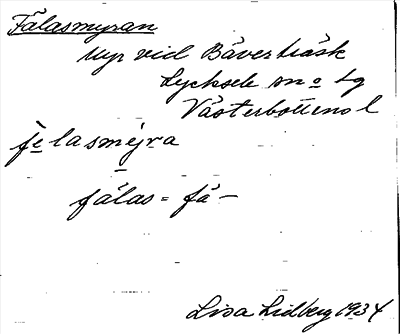 Fälasmyran
Myr vid Bäverträsk
Lycksele sn o lg
Västerbottens l
fe̱lasmẏra
fälas = fä-
Lisa Lidberg 1934